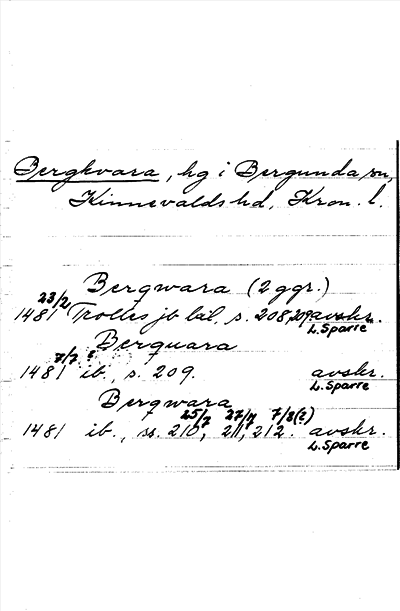 Bergkvara, hg i Bergunda sn,
Kinnevalds hd, Kron. l.
Bergwara (2 ggr.)
23/2
1481 Trolles jb bil, s. 208, 209 avskr.
L. Sparre
Berquara
7/7
1481 ib., s. 209. avskr.
L. Sparre
Bergwara
25/7 27/7 7/8 (?)
1481 ib., ss. 210, 211, 212. avskr.
L. Sparre